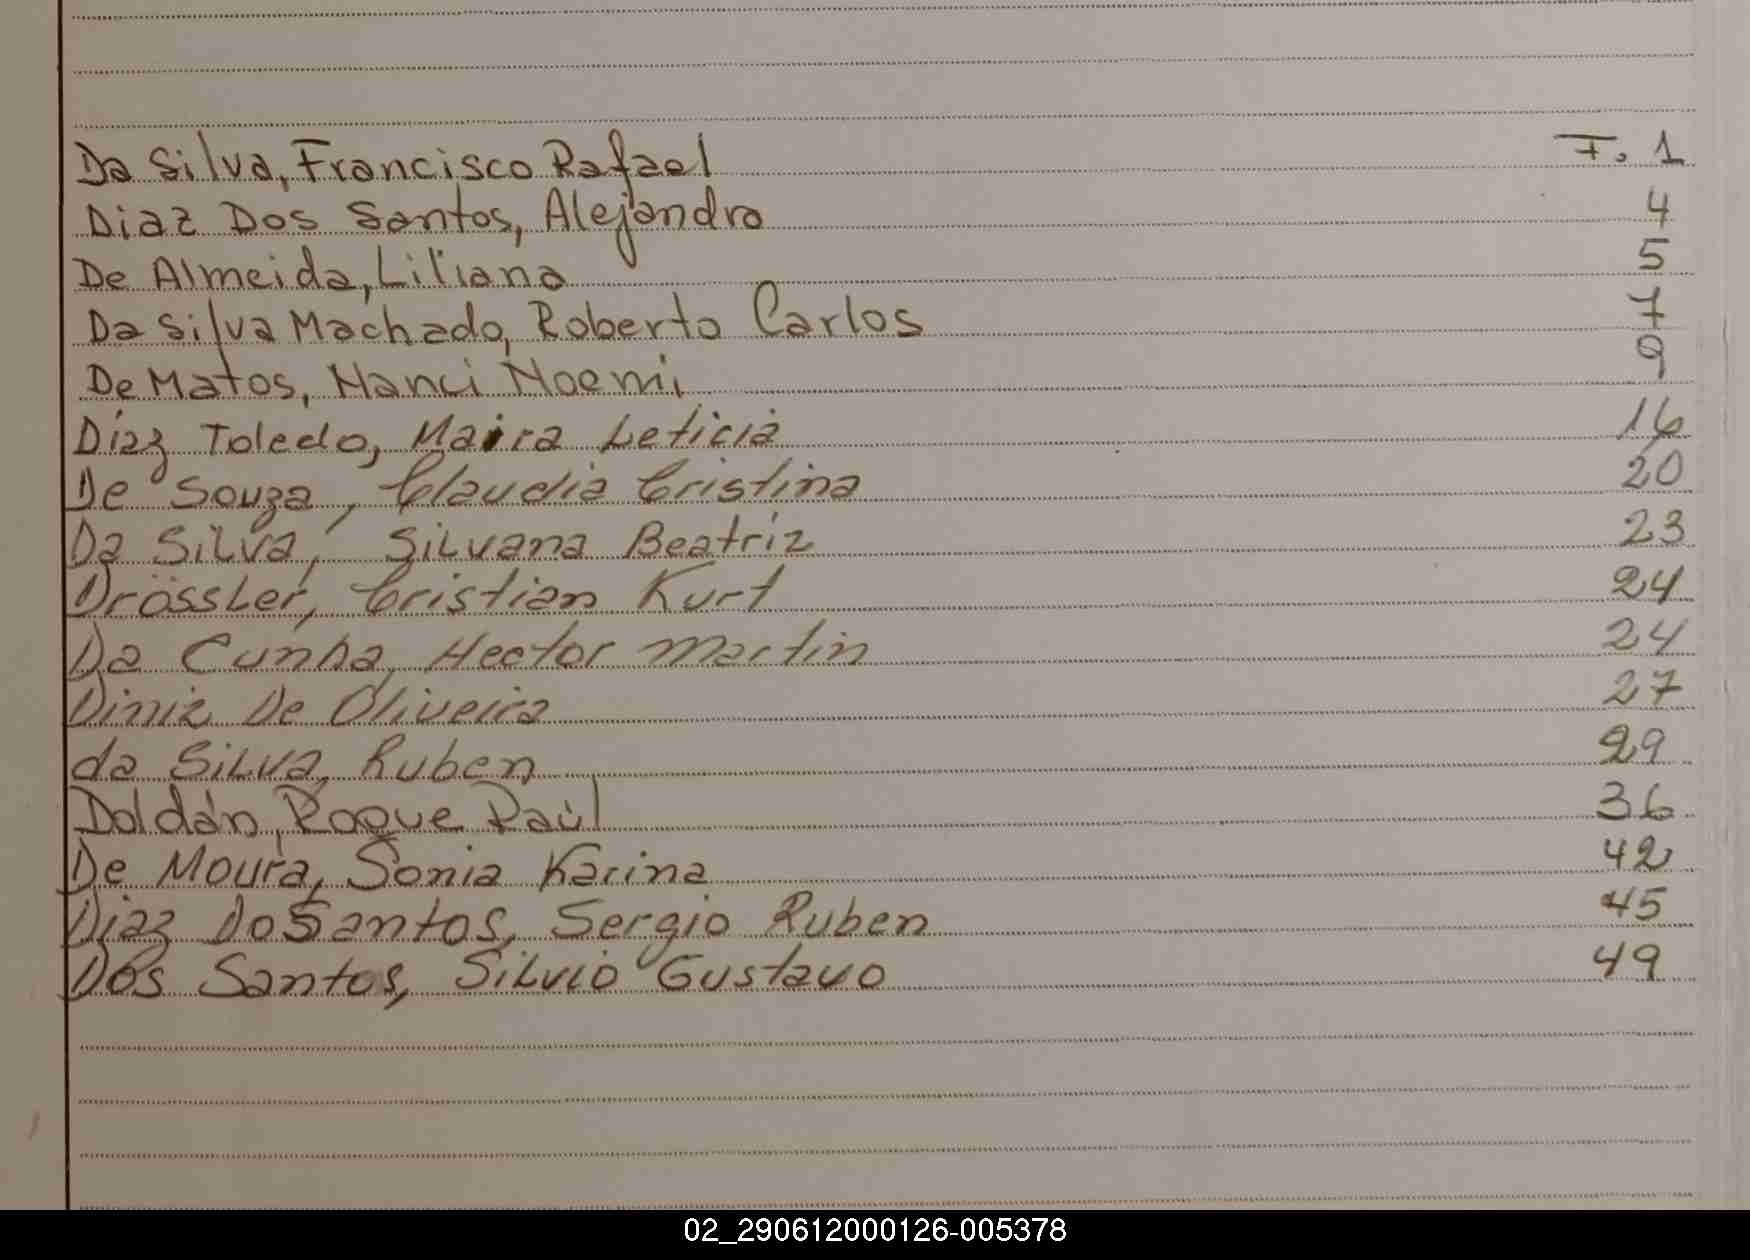 Da Silva, Francisco Rafael F. 1
Diaz Dos Santos, Alejandro 4
De Almeida, Liliana 5
Da Silva Machado, Roberto Carlos 7
De Matos, Nanci Noemi 9
Díaz Toledo, Maira Leticia 16
De Souza, Claudia Cristina 20
Da Silva, Silvana Beatriz 23
Drössler, Cristian Kurt 24
Da Cunha, Hector Martin 24
Diniz De Oliveira 27
da Silva, Ruben 29
Doldán, Roque Raúl 36
De Moura, Sonia Karina 42
Diaz DoSantos, Sergio Ruben 45
Dos Santos, Silvio Gustavo 49
02_290612000126-005378